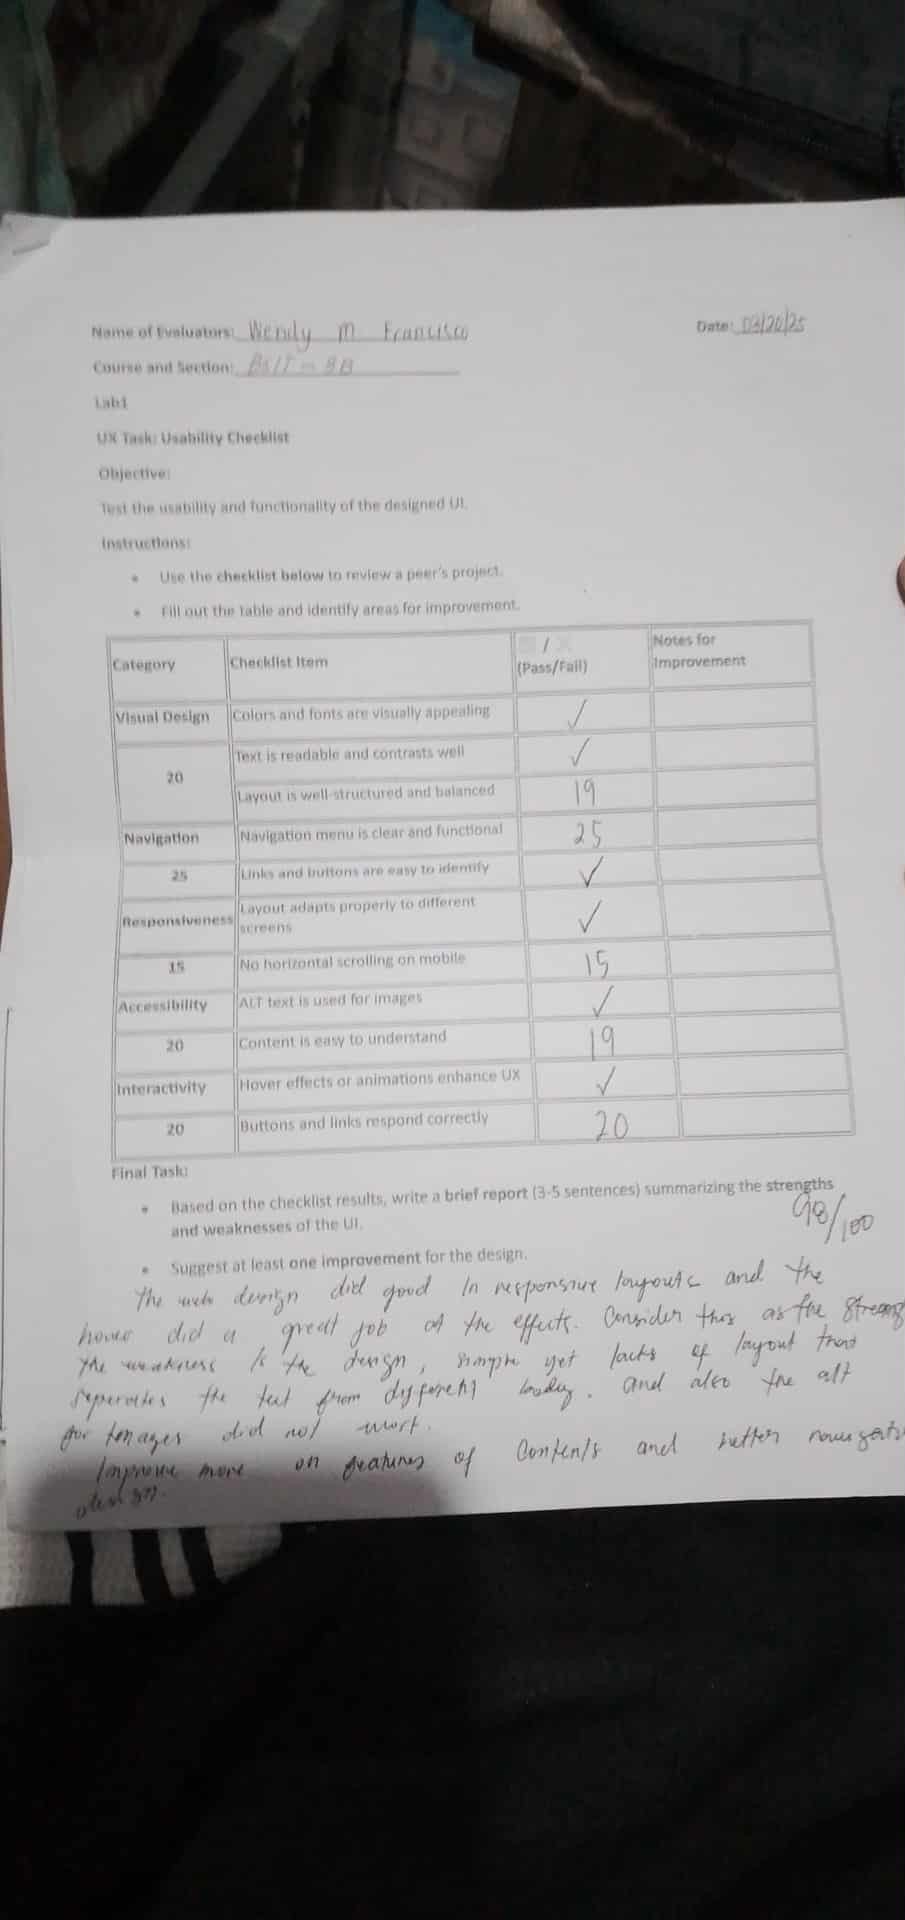 Name of Evaluators: Wendy M Francisco
Date: 03/20/25
Course and Section: BSIT - 3B
Lab1
UX Task: Usability Checklist
Objective:
Test the usability and functionality of the designed UI.
Instructions:
• Use the checklist below to review a peer's project.
• Fill out the table and identify areas for improvement.
Category Checklist Item / (Pass/Fail) Notes for Improvement
Visual Design Colors and fonts are visually appealing ✓
20 Text is readable and contrasts well ✓
Layout is well-structured and balanced 19
Navigation Navigation menu is clear and functional 25
25 Links and buttons are easy to identify ✓
Responsiveness Layout adapts properly to different screens ✓
15 No horizontal scrolling on mobile 15
Accessibility ALT text is used for images ✓
20 Content is easy to understand 19
Interactivity Hover effects or animations enhance UX ✓
20 Buttons and links respond correctly 20
Final Task:
• Based on the checklist results, write a brief report (3-5 sentences) summarizing the strengths
and weaknesses of the UI.
98/100
• Suggest at least one improvement for the design.
The web design did good in responsive layouts and the
hover did a great job of the effects. Consider this as the
the weakness is the design, simple yet lacks of layout that
the text from and also the alt
did not work.
Improve more on features of Contents and better
design.